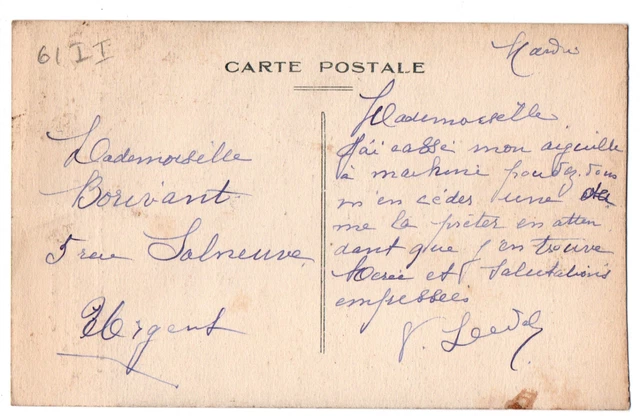 61 II
CARTE POSTALE
Mardi
Mademoiselle
Borivant
5 rue Salneuve
Urgent
Mademoiselle
J'ai cassé mon aiguille
à machine pouvez-vous
m'en céder une
me la prêter en atten
dant que j'en trouve
Merci et Salutations
empressées
V.